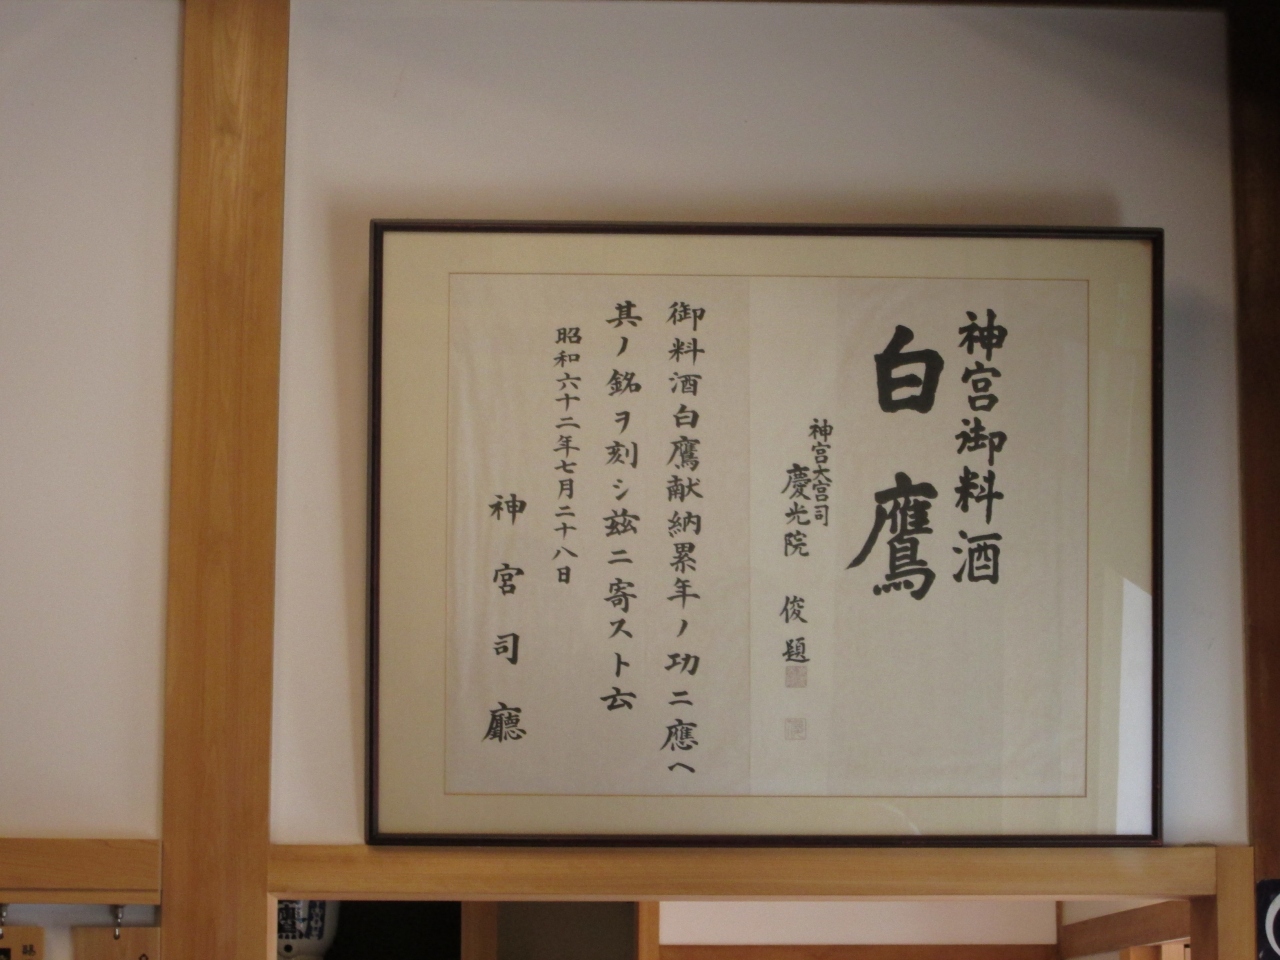 神宮御料酒
白鷹
神宮大宮司
慶光院俊題
御料酒白鷹献納累年ノ功ニ應ヘ
其ノ銘ヲ刻シ茲ニ寄スト云
昭和六十二年七月二十八日
神宮司廳